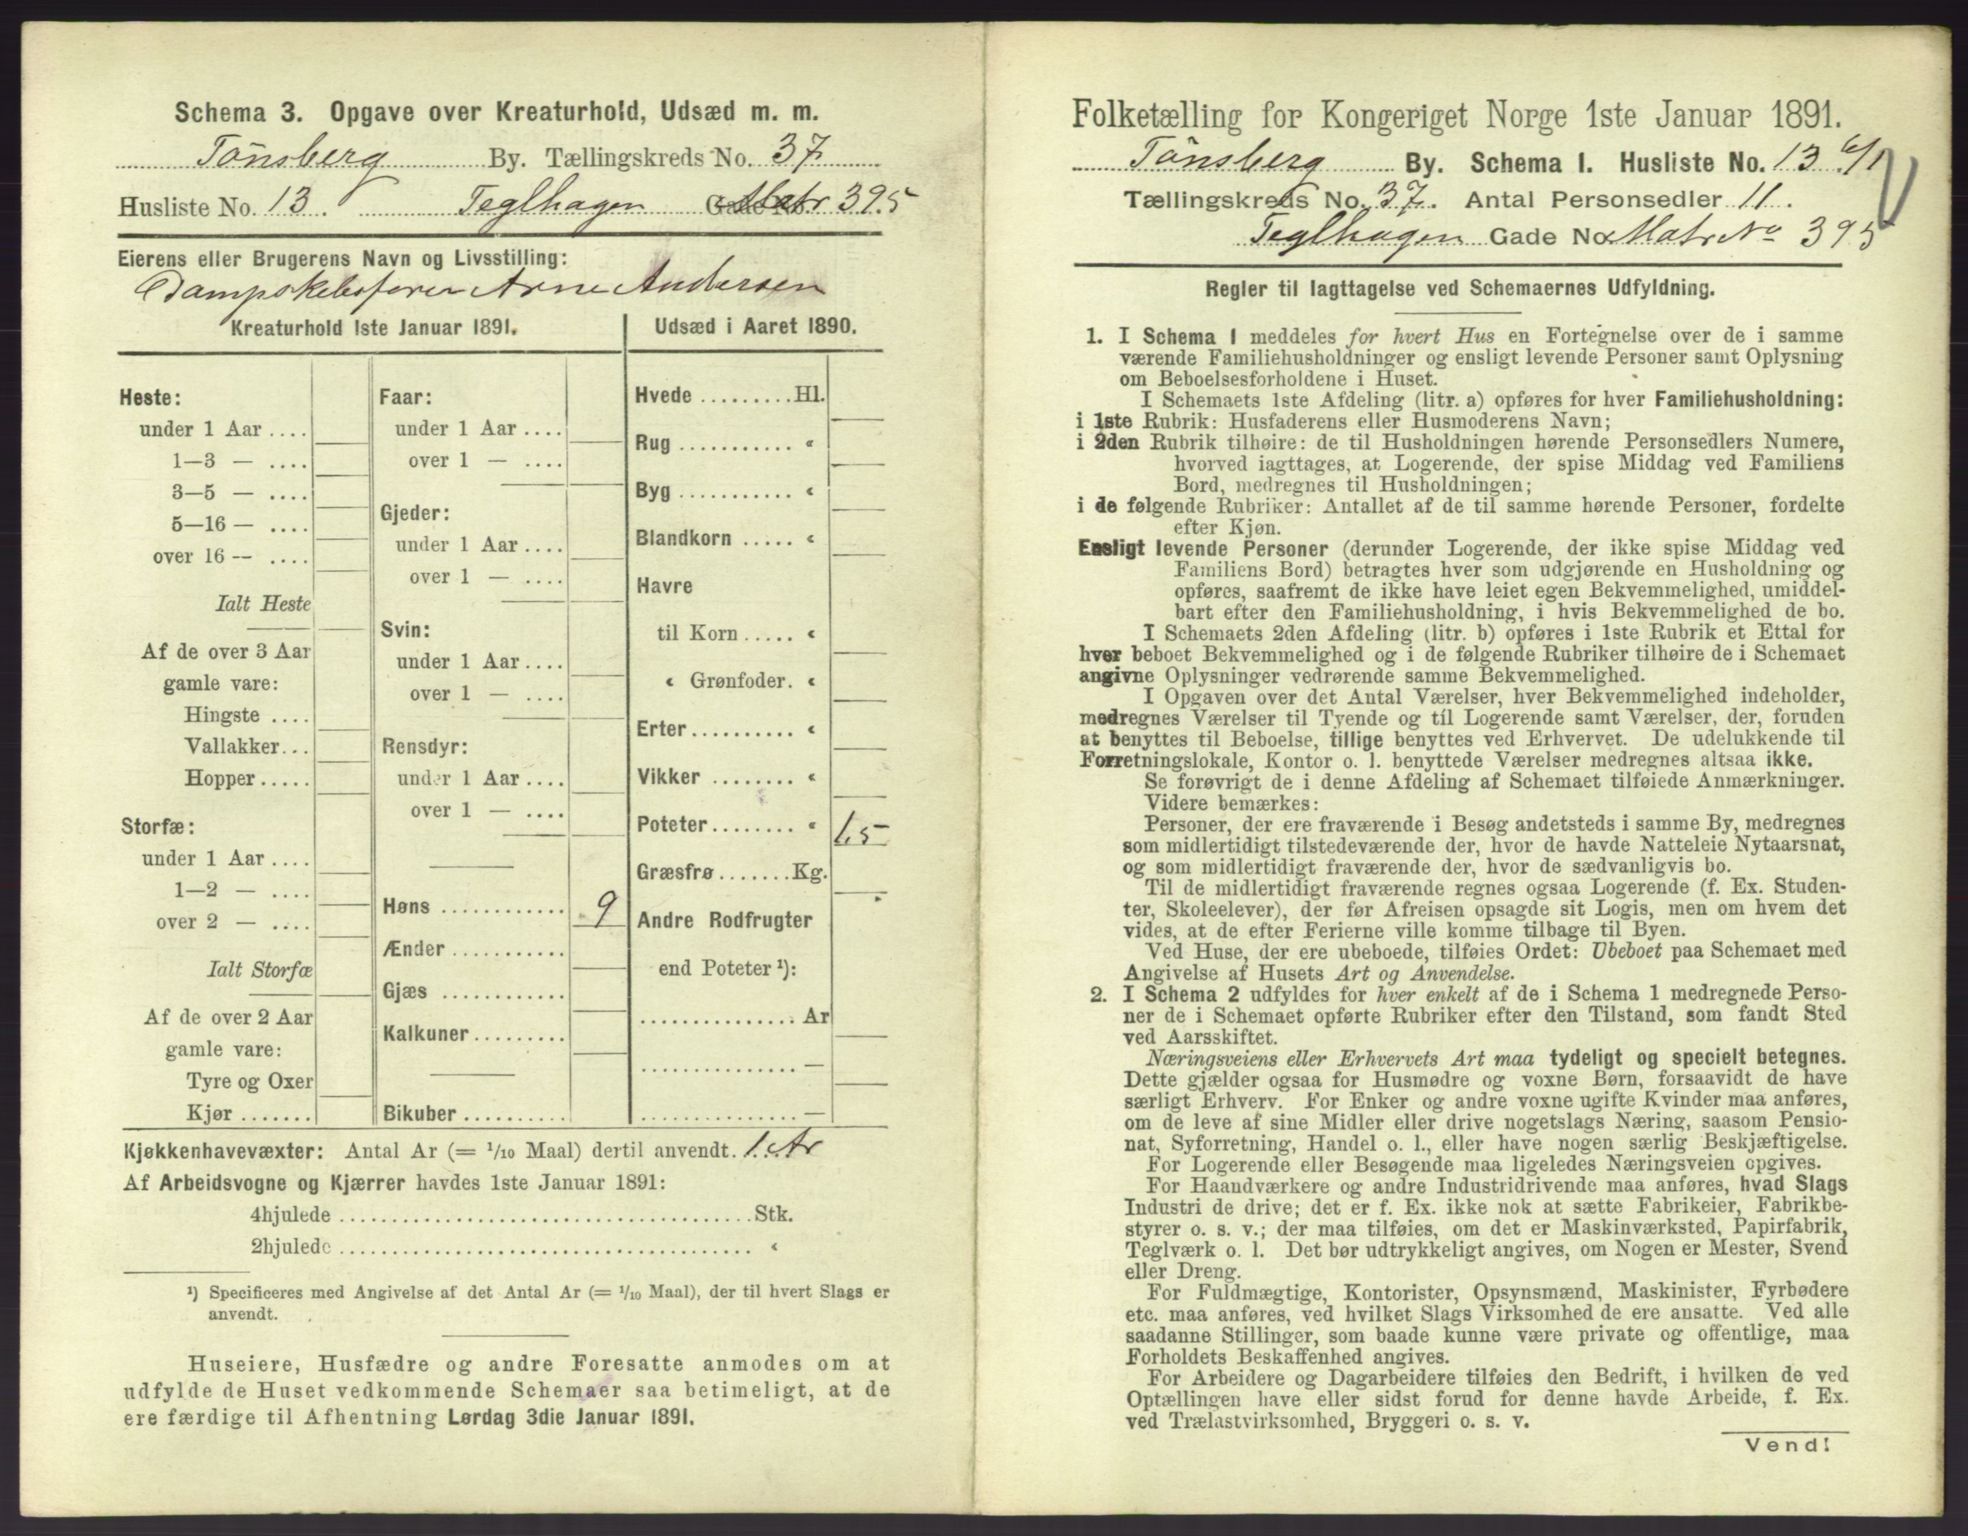 Schema 3. Opgave over Kreaturhold, Udsæd m. m.
Tönsberg By. Tællingskreds No. 37
Husliste No. 13. Teglhagen Gade No. Matr 395
Eierens eller Brugerens Navn og Livsstilling:
Dampskibsfører Arne Andersen
Kreaturhold 1ste Januar 1891.
Heste:
under 1 Aar ....
1—3 — ....
3—5 — ....
5—16 — ....
over 16 — ....
Ialt Heste
Af de over 3 Aar
gamle vare:
Hingste ....
Vallakker...
Hopper.....
Storfæ:
under 1 Aar ....
1—2 — ....
over 2 — ....
Ialt Storfæ
Af de over 2 Aar
gamle vare:
Tyre og Oxer
Kjør .......
Faar:
under 1 Aar ....
over 1 — ....
Gjeder:
under 1 Aar ....
over 1 — ....
Svin:
under 1 Aar ....
over 1 — ....
Rensdyr:
under 1 Aar ....
over 1 — ....
Høns ............ 9
Ænder ...........
Gjæs ............
Kalkuner.........
Bikuber ..........
Udsæd i Aaret 1890.
Hvede .........Hl.
Rug ........... «
Byg ........... «
Blandkorn ..... «
Havre
til Korn ..... «
« Grønfoder. «
Erter.......... «
Vikker ........ «
Poteter........ « 1,5
Græsfrø.......Kg.
Andre Rodfrugter
end Poteter ¹):
............... Ar
............... —
............... —
Kjøkkenhavevæxter: Antal Ar (= 1/10 Maal) dertil anvendt. 1. Ar
Af Arbeidsvogne og Kjærrer havdes 1ste Januar 1891:
4hjulede ......................................Stk.
2hjulede ...................................... «
¹) Specificeres med Angivelse af det Antal Ar (= 1/10 Maal), der til hvert Slags er
anvendt.
Huseiere, Husfædre og andre Foresatte anmodes om at
udfylde de Huset vedkommende Schemaer saa betimeligt, at de
ere færdige til Afhentning Lørdag 3die Januar 1891.
Folketælling for Kongeriget Norge 1ste Januar 1891.
Tönsberg By. Schema I. Husliste No. 13 6/1
Tællingskreds No. 37. Antal Personsedler 11.
Teglhagen Gade No. Matr No 395
Regler til Iagttagelse ved Schemaernes Udfyldning.
1. I Schema 1 meddeles for hvert Hus en Fortegnelse over de i samme
værende Familiehusholdninger og ensligt levende Personer samt Oplysning
om Beboelsesforholdene i Huset.
I Schemaets 1ste Afdeling (litr. a) opføres for hver Familiehusholdning:
i 1ste Rubrik: Husfaderens eller Husmoderens Navn;
i 2den Rubrik tilhøire: de til Husholdningen hørende Personsedlers Numere,
hvorved iagttages, at Logerende, der spise Middag ved Familiens
Bord, medregnes til Husholdningen;
i de følgende Rubriker: Antallet af de til samme hørende Personer, fordelte
efter Kjøn.
Ensligt levende Personer (derunder Logerende, der ikke spise Middag ved
Familiens Bord) betragtes hver som udgjørende en Husholdning og
opføres, saafremt de ikke have leiet egen Bekvemmelighed, umiddel-
bart efter den Familiehusholdning, i hvis Bekvemmelighed de bo.
I Schemaets 2den Afdeling (litr. b) opføres i 1ste Rubrik et Ettal for
hver beboet Bekvemmelighed og i de følgende Rubriker tilhøire de i Schemaet
angivne Oplysninger vedrørende samme Bekvemmelighed.
I Opgaven over det Antal Værelser, hver Bekvemmelighed indeholder,
medregnes Værelser til Tyende og til Logerende samt Værelser, der, foruden
at benyttes til Beboelse, tillige benyttes ved Erhvervet. De udelukkende til
Forretningslokale, Kontor o. l. benyttede Værelser medregnes altsaa ikke.
Se forøvrigt de i denne Afdeling af Schemaet tilføiede Anmærkninger.
Videre bemærkes:
Personer, der ere fraværende i Besøg andetsteds i samme By, medregnes
som midlertidigt tilstedeværende der, hvor de havde Natteleie Nytaarsnat,
og som midlertidigt fraværende der, hvor de sædvanligvis bo.
Til de midlertidigt fraværende regnes ogsaa Logerende (f. Ex. Studen-
ter, Skoleelever), der før Afreisen opsagde sit Logis, men om hvem det
vides, at de efter Ferierne ville komme tilbage til Byen.
Ved Huse, der ere ubeboede, tilføies Ordet: Ubeboet paa Schemaet med
Angivelse af Husets Art og Anvendelse.
2. I Schema 2 udfyldes for hver enkelt af de i Schema 1 medregnede Perso-
ner de i Schemaet opførte Rubriker efter den Tilstand, som fandt Sted
ved Aarsskiftet.
Næringsveiens eller Erhvervets Art maa tydeligt og specielt betegnes.
Dette gjælder ogsaa for Husmødre og voxne Børn, forsaavidt de have
særligt Erhverv. For Enker og andre voxne ugifte Kvinder maa anføres,
om de leve af sine Midler eller drive nogetslags Næring, saasom Pensio-
nat, Syforretning, Handel o. l., eller have nogen særlig Beskjæftigelse.
For Logerende eller Besøgende maa ligeledes Næringsveien opgives.
For Haandværkere og andre Industridrivende maa anføres, hvad Slags
Industri de drive; det er f. Ex. ikke nok at sætte Fabrikeier, Fabrikbe-
styrer o. s. v.; der maa tilføies, om det er Maskinværksted, Papirfabrik,
Teglværk o. l. Det bør udtrykkeligt angives, om Nogen er Mester, Svend
eller Dreng.
For Fuldmægtige, Kontorister, Opsynsmænd, Maskinister, Fyrbødere
etc. maa anføres, ved hvilket Slags Virksomhed de ere ansatte. Ved alle
saadanne Stillinger, som baade kunne være private og offentlige, maa
Forholdets Beskaffenhed angives.
For Arbeidere og Dagarbeidere tilføies den Bedrift, i hvilken de ved
Optællingen have eller sidst forud for denne havde Arbeide, f. Ex.
ved Trælastvirksomhed, Bryggeri o. s. v.
Vend!